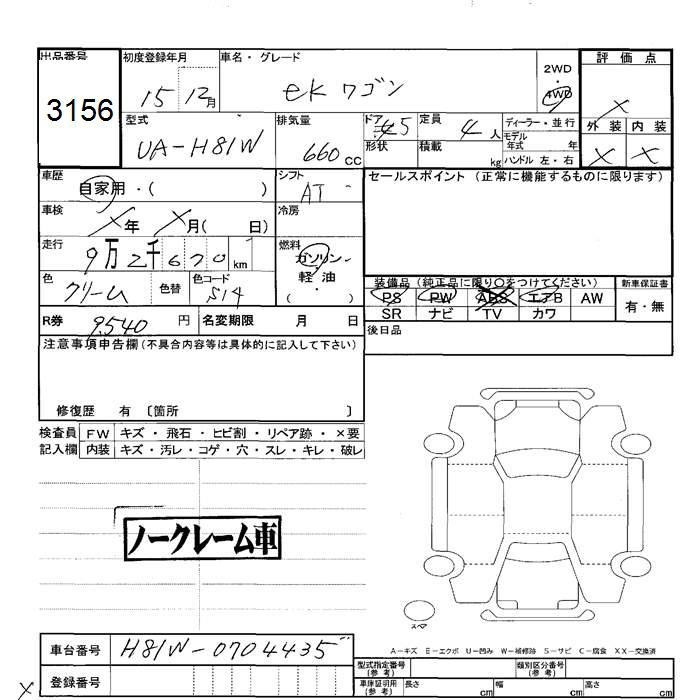 出品番号 初度登録年月 車名・グレード 2WD 評価点
3156 15 12月 ek ワゴン 4WD X
型式 排気量 ドア 定員 ディーラー・並行 外装 内装
UA-H81W 660 cc 5 4 人 モデル年式 年 X X
形状 積載 kg ハンドル 左・右
車歴 シフト セールスポイント (正常に機能するものに限ります)
自家用・( ) AT
車検 冷房
X年 X月( 日)
走行 燃料
9万2千670km ガソリン・
軽油・
色 色替 色コード ( )
クリーム S14
装備品 (純正品に限り○をつけてください) 新車保証書
PS PW ABS エアB AW 有・無
SR ナビ TV カワ
R券 9,540 円 名変期限 月 日 後日品
注意事項申告欄(不具合内容等は具体的に記入して下さい)
修復歴 有 〔箇所 〕
検査員 FW キズ・飛石・ヒビ割・リペア跡・×要
記入欄 内装 キズ・汚レ・コゲ・穴・スレ・キレ・破レ
ノークレーム車
スペア
A-キズ E-エクボ U-凹み W-補修跡 S-サビ C-腐食 XX-交換済
車台番号 H81W-0704435
登録番号
型式指定番号(参考) 類別区分番号(参考)
車庫証明用(参考) 長さ cm 幅 cm 高さ cm
X